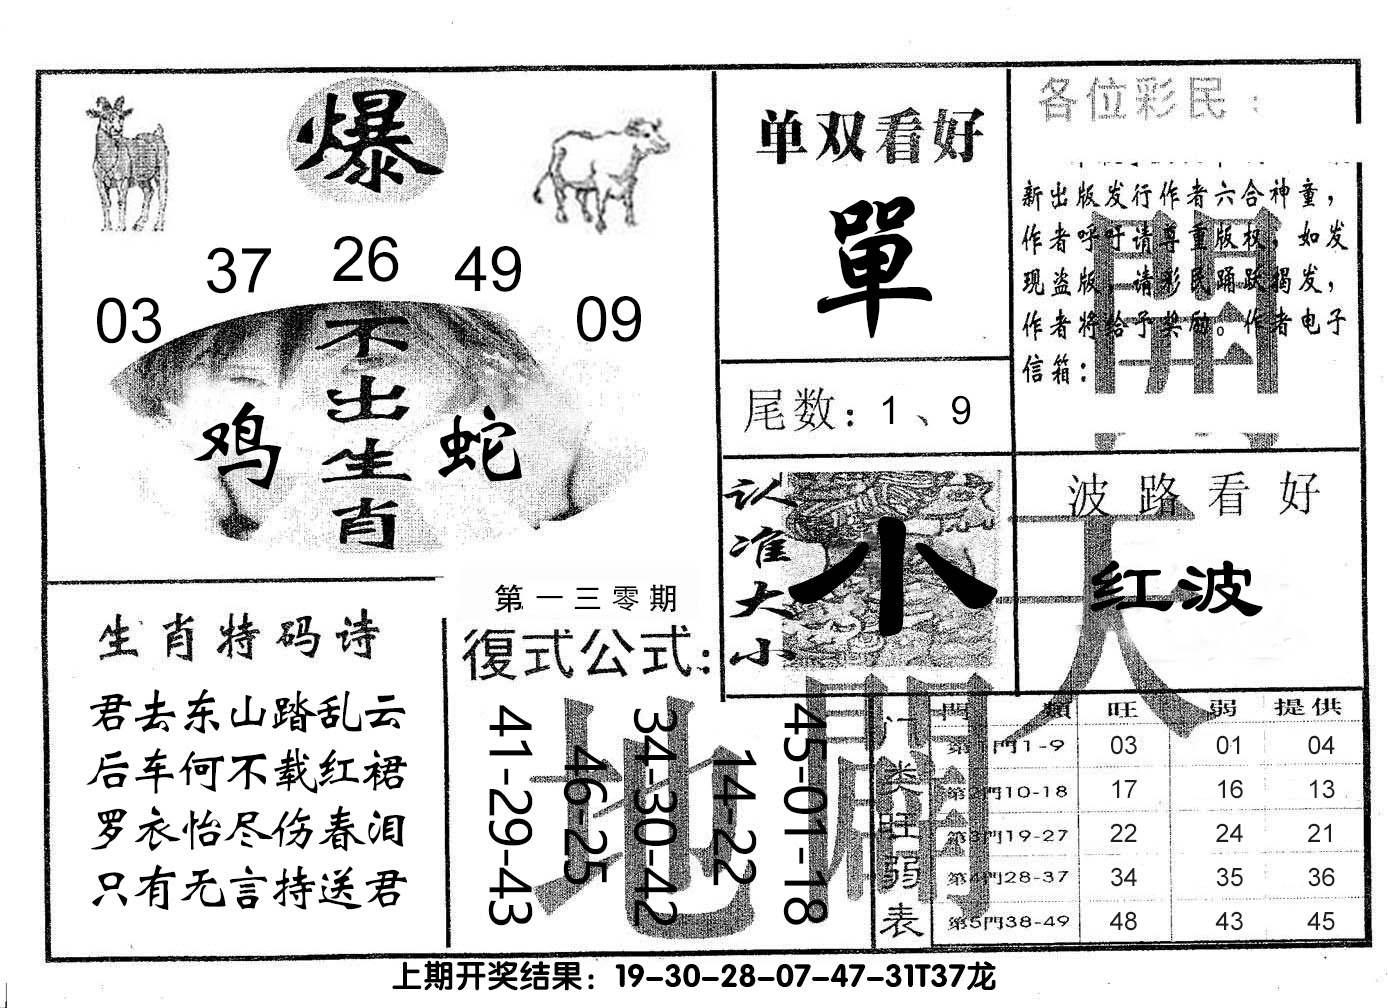 爆
37 26 49
03 09
不出生肖
鸡 蛇
生肖特码诗
君去东山踏乱云
后车何不载红裙
罗衣怡尽伤春泪
只有无言持送君
第一三零期
復式公式：
41-29-43
46-25
34-30-42
14-22
45-01-18
单双看好
單
尾数：1、9
认准大小
小
各位彩民：
新出版发行作者六合神童，
作者呼吁请尊重版权，如发
现盗版，请彩民踊跃揭发，
作者将给予奖励。作者电子
信箱：
開
波路看好
红波
天
地
開
门类旺弱表
門類 旺 弱 提供
第1門1-9 03 01 04
第2門10-18 17 16 13
第3門19-27 22 24 21
第4門28-37 34 35 36
第5門38-49 48 43 45
上期开奖结果：19-30-28-07-47-31T37龙